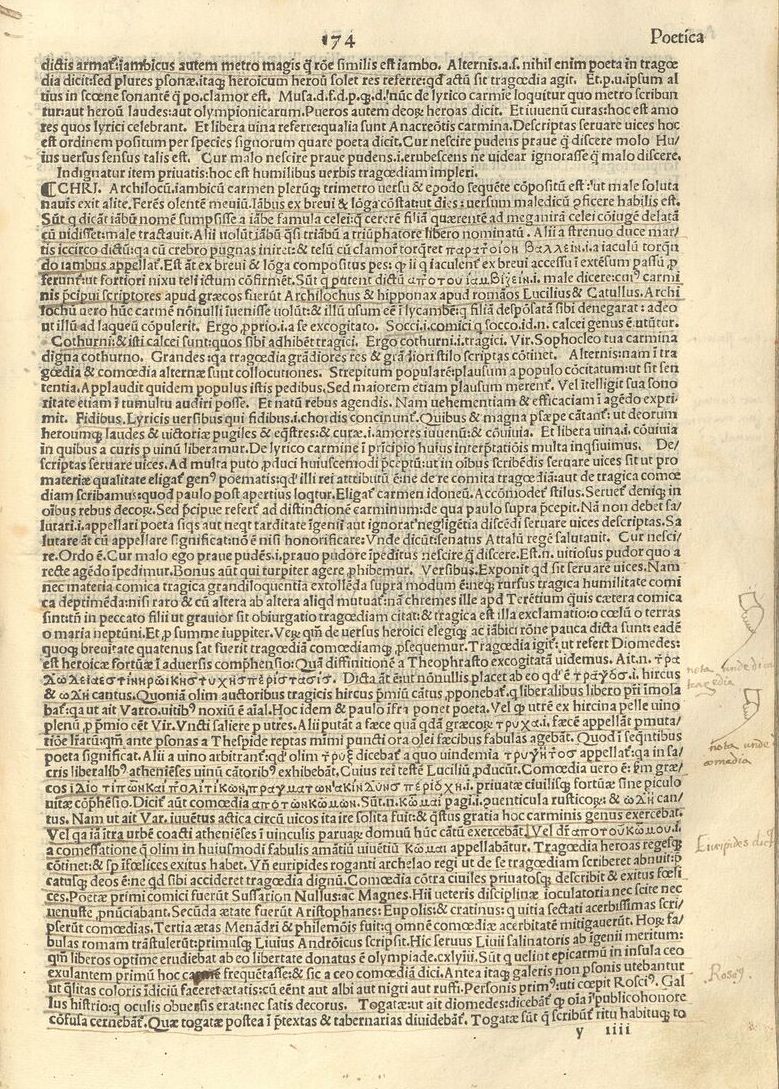 174 Poetica
dictis armat᷒:iambicus autem metro magis q̃ rõe similis est iambo. Alternis.a.s. nihil enim poeta in tragœ
dia dicit:sed plures p̱sonæ.itaq; heroicum heroũ solet res referre:qđ actũ sit tragœdia agit. Et.p.u.ipsum al
tius in scœne sonantẽ q̃ po.clamor est. Musa.d.f.d.p.q;.d.nũc de lyrico carmĩe loquitur quo metro scribun
tur:aut heroũ laudes:aut olympionicarum.Pueros autem deoꝝ heroas dicit. Et iuuenũ curas:hoc est amo
res quos lyrici celebrant. Et libera uina referre:qualia sunt Anacreõtis carmina.Descriptas seruare uices hoc
est ordinem positum per species signorum quare poeta dicit.Cur nescire pudens praue q̃ discere molo Hu/
ius uersus sensus talis est. Cur malo nescire praue pudens.i.erubescens ne uidear ignorasse q̃ malo discere.
Indignatur item priuatis:hoc est humilibus uerbis tragœdiam impleri.
¶CHRI. Archilocũ.iambicũ carmen plerũq; trimetro uersu & epodo sequẽte cõpositũ est:ut male soluta
nauis exit alite. Ferẽs olentẽ meuiũ.Iãbus ex breui & lõga cõstat:ut dies:uersum maledicũ ꝓficere habilis est.
Sũt q dicãt iãbũ nomẽ sumpsisse a iãbe famula celei:q̃ cererẽ filiã quærentẽ ad meganirã celei cõiugẽ delatã
cũ uidisset:male tractauit. Alii uolũt iãbũ q̃si triãbũ a triũphatore libero nominatũ. Alii a strenuo duce mar/
tis iccirco dictũ:qa cũ crebro pugnas iniret:& telũ cũ clamor̃ torq̃ret παρατοιον βαλλειν.i.a iaculũ torq̃n
do iambus appellat᷒.Est aũt ex breui & lõga compositus pes: ꝙ ii q iaculent᷒ ex breui accessu ĩ extẽsum passũ ꝓ
ferunt᷒:ut fortiori nixu teli ictum cõfirmẽt. Sũt q putent dictũ αποτου ιαμβιζειν.i. male dicere:cui᷒ carmi
nis p̃cipui scriptores apud græcos fuerũt Archilochus & hipponax apud romãos Lucilius & Catullus. Archi
lochũ uero hũc carmẽ nõnulli ĩuenisse uolũt:& illũ usum eẽ ĩ lycambẽ:q filiã despõsatã sibi denegarat: adeo
ut illũ ad laqueũ cõpulerit. Ergo ,pprio.i.a se excogitato. Socci.i.comici q socco.id.n. calcei genus ẽ.utũtur.
Cothurni:& isti calcei sunt:quos sibi adhibẽt tragici. Ergo cothurni.i.tragici. Vir.Sophocleo tua carmina
digna cothurno. Grandes:qa tragœdia grãdiores res & grãdiori stilo scriptas cõtinet. Alternis:nam ĩ tra
gœdia & comœdia alternæ sunt collocutiones. Strepitum populare:plausum a populo cõcitatum:ut sit sen
tentia.Applaudit quidem populus istis pedibus.Sed maiorem etiam plausum merent᷒. Vel ĩtelligit sua sono
ritate etiam ĩ tumultu audiri posse. Et natũ rebus agendis. Nam uehementiam & efficaciam ĩ agẽdo expri-
mit. Fidibus.Lyricis uersibus qui fidibus.i.chordis concinunt᷒.Quibus & magna p̱sæpe cãtant᷒: ut deorum
heroumq; laudes & uictoriæ pugiles & eq̃stres:& curæ.i.amores iuuenũ:& cõuiuia. Et libera uina.i. cõuiuia
in quibus a curis p̱ uinũ liberamur.De lyrico carmine ĩ p̃ricipio huius interp̃tatiõis multa inq̃siuimus. De/
scriptas seruare uices.Ad multa puto ,pduci huiuscemodi p̃ceptũ:ut in oĩbus scribẽdis seruare uices sit ut pro
materiæ qualitate eligat᷒ gen᷒ poematis:qd᷒ illi rei attributũ ẽ:ne de re comita tragœdiã:aut de tragica comœ
diam scribamus:quod paulo post apertius loqtur.Eligat᷒ carmen idoneũ.Accõmodet᷒ stilus. Seruet᷒ deniq; in
oĩbus rebus decorꝝ. Sed p̃cipue refert᷒ ad distinctionẽ carminum:de qua paulo supra p̃cepit.Nã non debet sa/
lutari.i.appellari poeta siqs aut neqt tarditate ĩgenii aut ignorat᷒ negligẽtia discẽdi seruare uices descriptas.Sa
lutare aũt cũ appellare significat:nõ ẽ nisi honorificare:Vnde dicũt:senatus Attalũ regẽ salutauit. Cur nesci/
re.Ordo ẽ.Cur malo ego praue pudẽs.i.prauo pudore ĩpeditus nescire q̃ discere.Est.n.uitiosus pudor quo a
recte agẽdo ĩpedimur.Bonus aũt qui turpiter agere ,phibemur. Versibus.Exponit qd sit seruare uices.Nam
nec materia comica tragica grandiloquentia extollẽda supra modum ẽ:neq; rursus tragica humilitate comi
ca deptimẽda:nisi raro & cũ altera ab altera aliqd mutuat᷒:nã chremes ille apđ Terẽtium quis cætera comica
sint:tñ in peccato filii ut grauior sit obiurgatio tragœdiam citat:& tragica est illa exclamatio:o cœlũ o terras
o maria neptũni.Et,p summe iuppiter.Veꝝ qm̃ de uersus heroici elegiq; ac iãbici rõne pauca dicta sunt:eadẽ
quoq; breuitate quatenus sat fuerit tragœdiã comœdiamq; ,psequemur.Tragœdia igit᷒:ut refert Diomedes:
est heroicæ fortũæ ĩ aduersis comp̃hensio:Quã diffinitionẽ a Theophrasto excogitatã uidemus. Ait.n. τρα
Δωλειαεςτινηρωικηςτυχηςπερίςταςις. Dicta aũt eũt nõnullis placet ab eo qđ ẽ τραγος.i. hircus
& ωΔη cantus. Quoniã olim auctoribus tragicis hircus p̃miũ cãtus ,pponebat᷒.q liberalibus libero pri ĩmola
bat᷒:qa ut ait Varro.uitib᷒ noxiũ ẽ aĩal.Hoc idem & paulo ĩfra ponet poeta. Vel ꝙ utrẽ ex hircina pelle uino
plenũ ,p p̃mio cẽt Vir.Vncti saliere p̱ utres. Alii putãt a fæce quã qdã græcoꝝ τρυχα.i.fæcẽ appellãt p̱muta/
tiõe l̃rarũ:qm̃ ante p̱sonas a Thespide reptas mimi puncti ora olei fæcibus fabulas agebãt. Quod ĩ seq̃ntibus
poeta significat. Alii a uino arbitrant᷒:qđ olim τρυξ dicebat᷒ a quo uindemia τρυγητος appellat᷒:qa in sa/
cris liberalib᷒ atheniẽses uinũ cãtorib᷒ exhibebãt.Cuius rei testẽ Luciliũ ,pducũt.Comœdia uero ẽ: sm̃ græ/
cos ιΔιωτιπωνκαιπολιτικωνπραγματωνακινΔυνος περιοχη.i. priuatæ ciuilisq; fortũæ sine piculo
uitæ cõp̃hẽsio. Dicit᷒ aũt comœdia αποτωνκωμων.Sũt.n.κωμαι pagi.i.ꝓuenticula rusticoꝝ:& ωΔη can/
tus. Nam ut ait Var. iuuẽtus actica circũ uicos ita ire solita fuit:& q̃stus gratia hoc carminis genus exercebat.
Vel qa iã ĩtra urbẽ coacti atheniẽses ĩ uinculis paruaꝝ domuũ hũc cãtũ exercebãt.Vel dr̃ αποτουκωμου.i.
a comessatione q̃ olim in huiusmodi fabulis amãtiũ uiuẽtiũ Κωμαι appellabãtur. Tragœdia heroas regesq;
cõtinet:& sp̱ ĩfœlices exitus habet. Vñ euripides roganti archelao regi ut de se tragœdiam scriberet abnuit:p̃
catusq; deos ẽ:ne qd sibi accideret tragœdia dignũ.Comœdia cõtra ciuiles priuatosq; describit & exitus fœli
ces.Poetæ primi comici fuerũt Sussarion Nullus:ac Magnes.Hii ueteris disciplinæ iocularoria nec scite nec
uenuste ,pnũciabant.Secũda ætate fuerũt Aristophanes:Eupolis:& cratinus:q uitia sectati acerbissimas scri/
pserũt comœdias.Tertia ætas Menãdri & philemõis fuit:q omnẽ comœdiæ acerbitatẽ mitigauerũt. Hoꝝ fa/
bulas romam trãstulerũt:primusq; Liuius Andrõicus scripsit.Hic seruus Liuii salinatoris ab ĩgenii meritum:
qm̃ liberos optime erudiebat ab eo libertate donatus ẽ olympiade.cxlyiii.Sũt q uelint epicarmũ in insula ceo
exulantem primũ hoc carmẽ frequẽtasse:& sic a ceo comœdiã dici.Antea itaq; galeris non p̱sonis utebantur
ut q̃litas coloris ĩdiciũ faceret ætatis:cũ eẽnt aut albi aut nigri aut ruffi.Personis prim᷒:uti cœpit Rosci᷒. Gal
lus histrio:q oculis obuersis erat:nec satis decorus. Togatæ:ut ait diomedes:dicebãt᷒ ꝙ oĩa ĩ publico honore
cõfusa cernebãt᷒. Quæ togatæ postea ĩ p̃textas & tabernarias diuidebãt᷒. Togatæ sũt q̃ scribũt᷒ ritu habituq; to
y iiii
nota unde dicta
tragedia
nota unde
comedia
Euripides
Rosꝯ